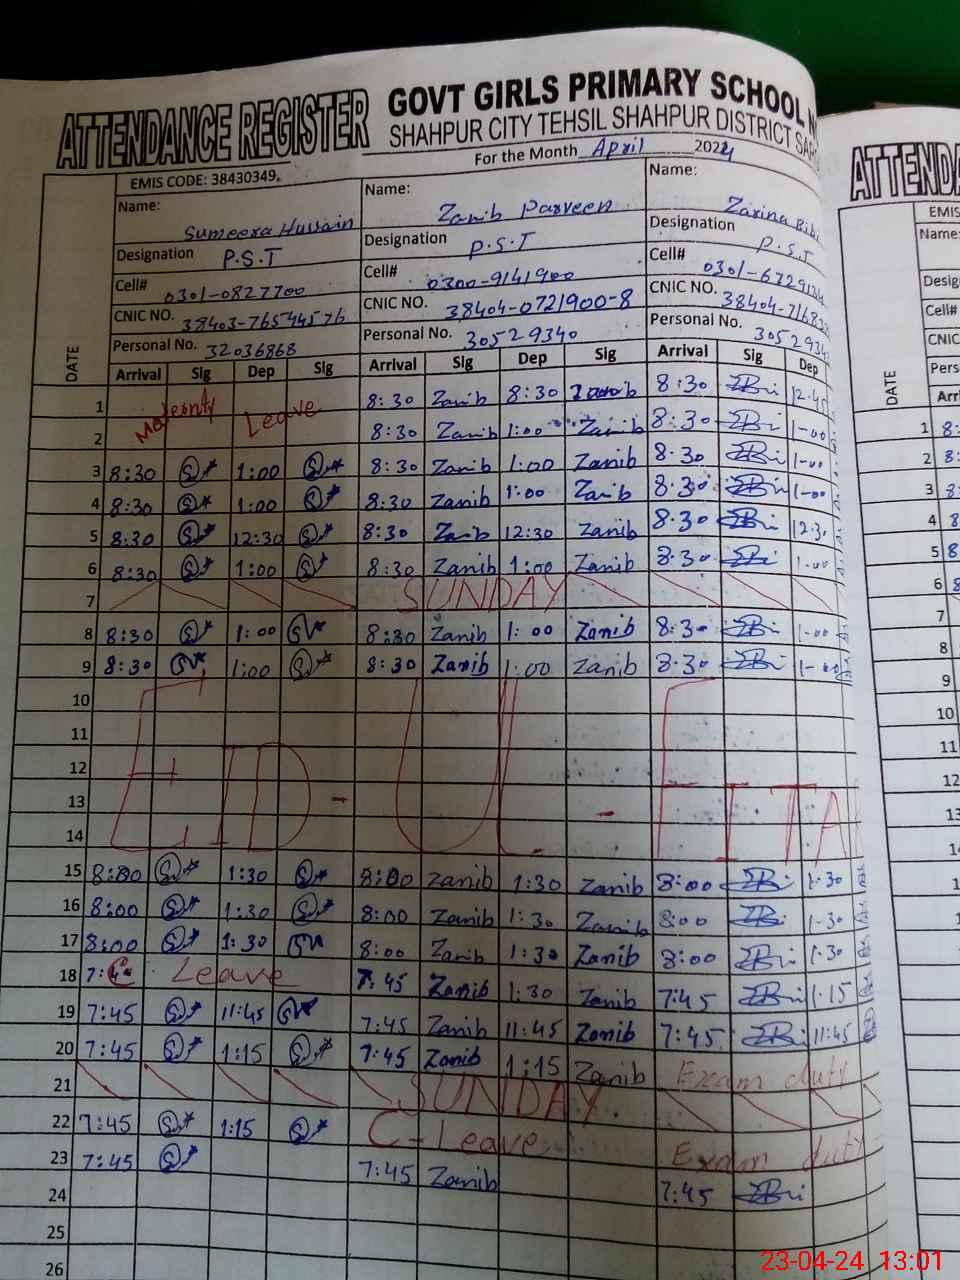 ATTENDANCE REGISTER GOVT GIRLS PRIMARY SCHOOL
SHAHPUR CITY TEHSIL SHAHPUR DISTRICT
For the Month April 2024
EMIS CODE: 38430349.
Name: Sumeera Hussain Name: Zanib Parveen Name: Zarina Bibi
Designation P.S.T Designation P.S.T Designation P.S.T
Cell# 0301-0827700 Cell# 0300-9141900 Cell# 0301-6729134
CNIC NO. 38403-76544576 CNIC NO. 38404-0721900-8 CNIC NO. 38404-71683
Personal No. 32036868 Personal No. 30529340 Personal No. 3052934
DATE Arrival Sig Dep Sig Arrival Sig Dep Sig Arrival Sig Dep
1 Maternty Leave 8:30 Zanib 8:30 Zanib 8:30 12-45
2 8:30 Zanib 1:00 Zanib 8:30 1-00
3 8:30 1:00 8:30 Zanib 1:00 Zanib 8:30 1-00
4 8:30 1:00 8:30 Zanib 1:00 Zanib 8:30 1-00
5 8:30 12:30 8:30 Zanib 12:30 Zanib 8:30 12:30
6 8:30 1:00 8:30 Zanib 1:00 Zanib 8:30 1-00
7 SUNDAY
8 8:30 1:00 8:30 Zanib 1:00 Zanib 8:3- 1-00
9 8:30 1:00 8:30 Zanib 1:00 Zanib 8:30 1-00
10
11
12 EID-UL-FITAR
13
14
15 8:00 1:30 8:00 Zanib 1:30 Zanib 8:00 1:30
16 8:00 1:30 8:00 Zanib 1:30 Zanib 8:00 1-30
17 8:00 1:30 8:00 Zanib 1:30 Zanib 8:00 1-30
18 C Leave 7:45 Zanib 1:30 Zanib 7:45 1-15
19 7:45 11:45 7:45 Zanib 11:45 Zanib 7:45 11:45
20 7:45 1:15 7:45 Zanib 1:15 Zanib Exam duty
21 SUNDAY
22 7:45 1:15 C-Leave Exam duty
23 7:45 7:45 Zanib 7:45
24
25
26
ATTENDA
EMIS
Name:
Desig
Cell#
CNIC
Pers
DATE Arr
1 8:
2 8:
3
4
5
6
7
8
9
10
11
12
13
23-04-24 13:01